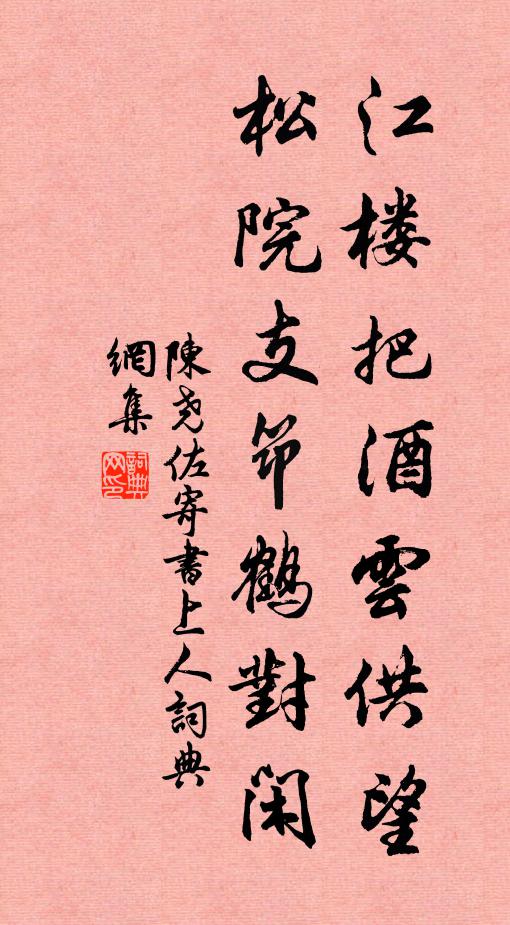 江楼把酒雲供望
松院支笻鶴對闲
陳尧佐寄書上人詞典
網集
詞典網印